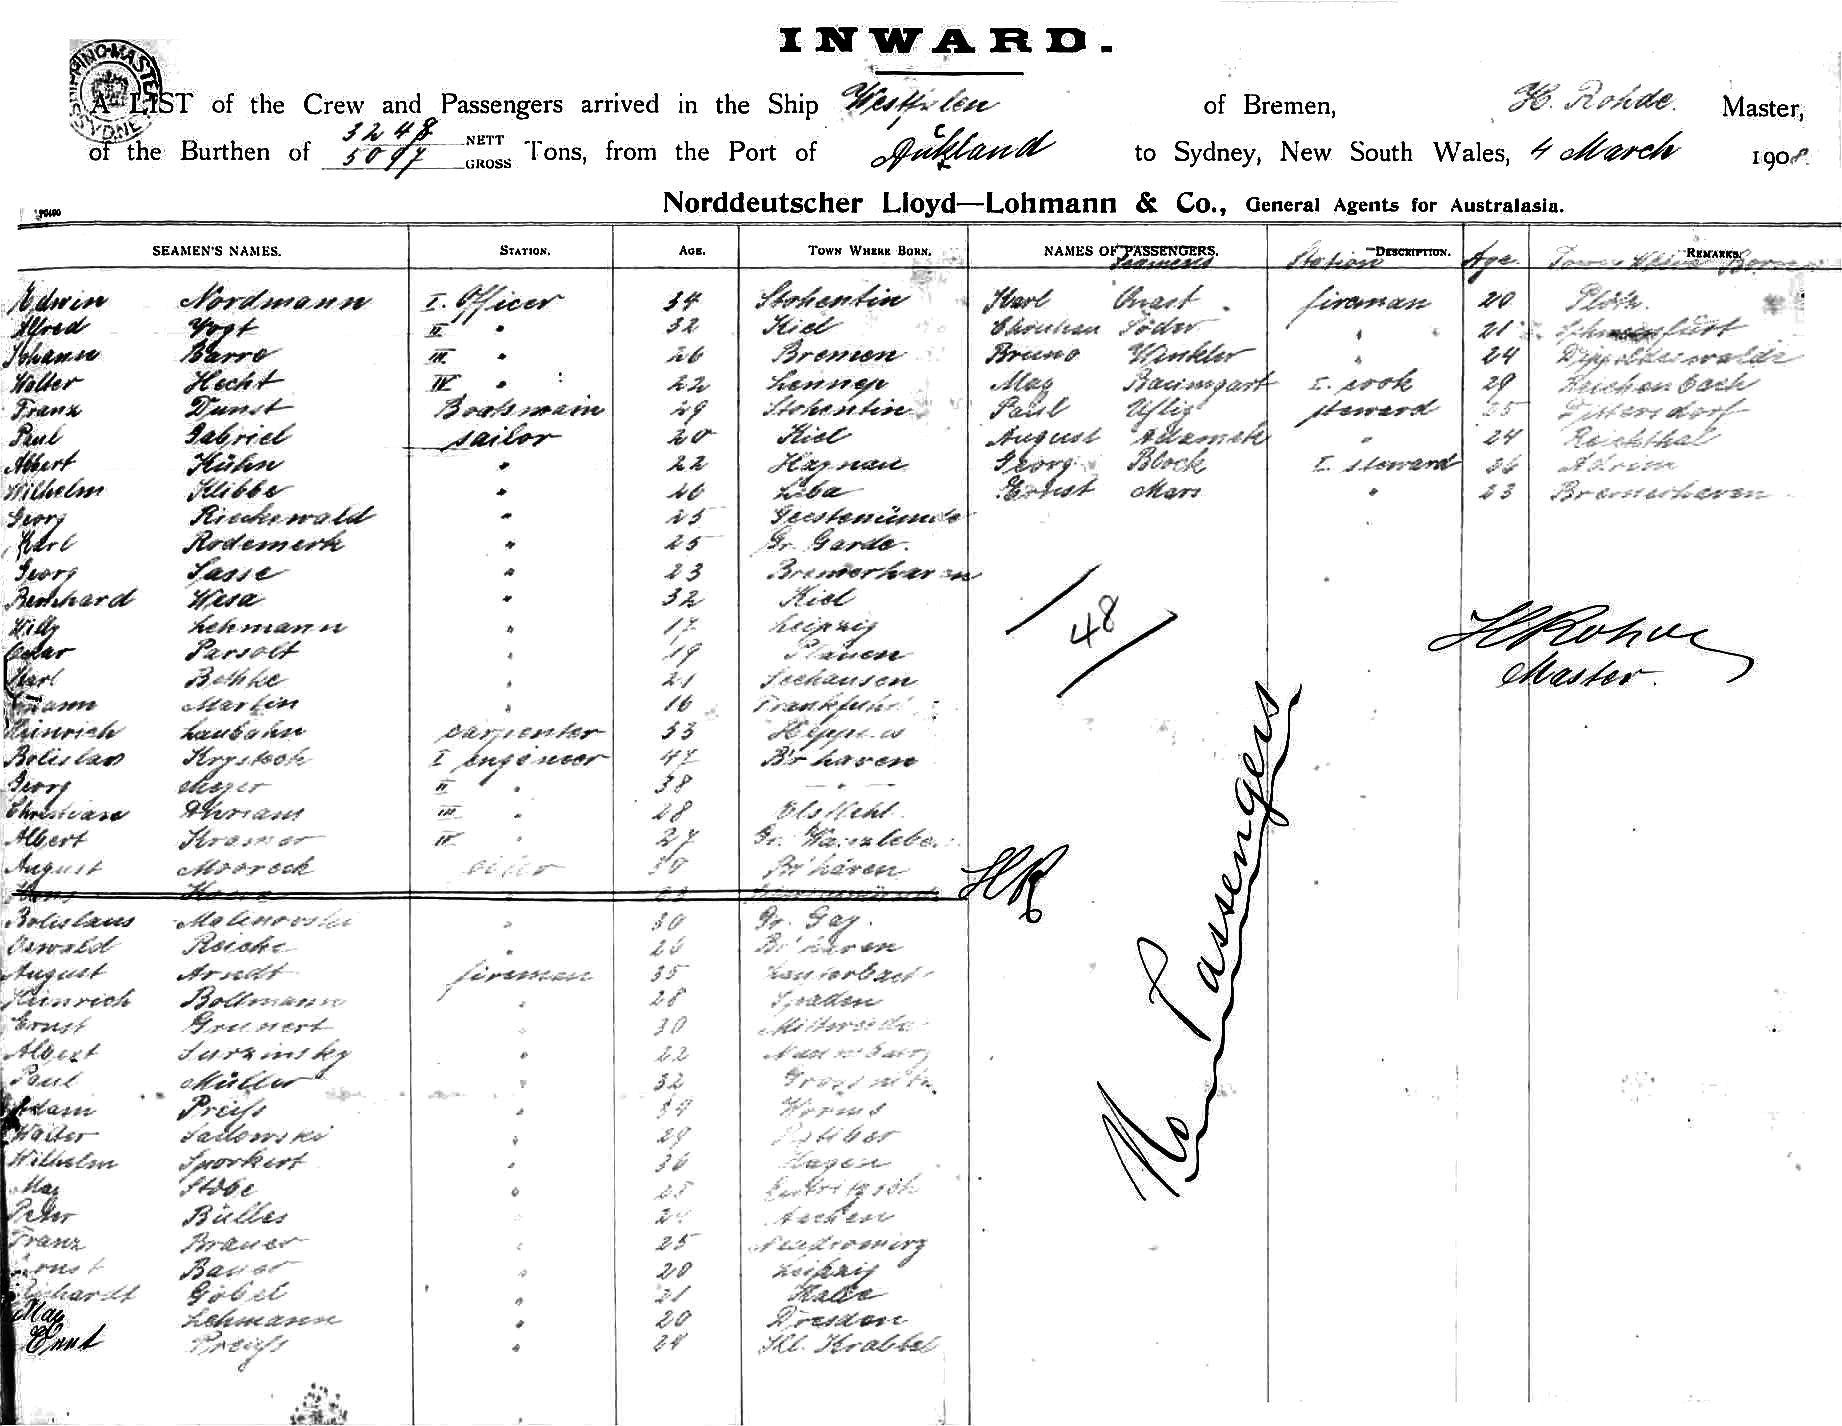 INWARD.
A LIST of the Crew and Passengers arrived in the Ship Westfalen of Bremen, H. Rohde. Master,
of the Burthen of 3248 NETT 5097 GROSS Tons, from the Port of Auckland to Sydney, New South Wales, 4 March 1908.
Norddeutscher Lloyd—Lohmann & Co., General Agents for Australasia.
SEAMEN'S NAMES. STATION. AGE. TOWN WHERE BORN. NAMES OF PASSENGERS. DESCRIPTION. REMARKS.
Seamens Station Age. Town Where Born
Edwin Nordmann I. Officer 34 Stohentin Karl Quast fireman 20
Alfred Vogt II " 32 Kiel Christian Söder " 21
Johann Barre III " 26 Bremen Bruno Winkler " 24 Dippoldiswalde
Walter Hecht IV " 22 Lennep Max Baumgart I. cook 29 Reichenbach
Franz Dunst Boatswain 29 Stohentin Paul Uflig steward
Paul Gabriel sailor 20 Kiel August Adamek " 24 Reichthal
Albert Kühn " 22 Haynau Georg Block I. steward
Wilhelm Klibbe " 26 Leba Ernst Mars " 23 Bremerhaven
Georg Rieckewald " 25 Geestemünde
Karl Rodemerk " 25 Gr. Garde.
Georg Sasse " 23 Bremerhaven
Bernhard Wesa " 32 Kiel
Willy Lehmann " 17 Leipzig
48
HRohde
Parsolt " 19 Plauen
Master.
Karl Bethke " 21 Seehausen
Martin " 16
Heinrich Laubahn carpenter 53
Bolislav Krystoch I engineer 47 B'rhaven
Georg Meyer II " 38 — " —
Christian Ahrians III " 28 Elsfleht
Albert Kramer IV " 27 Gr. Wanzleben
August Mooreck oiler 30 Br'haven
HR
Bolislaus Malinovski " 30 Gr. Gay.
Oswald Reiche " 26 Br'haven
August Arndt fireman 35 Lauterbach
Heinrich Bollmann " 28 Spaden
Ernst Grunert " 30 Mittweida
Albert Surzinsky " 22 Naumburg
Paul Müller " 32
Adam Preiß " 34 Worms
Walter Sadowski " 29 Ratibor
Wilhelm Sporkert " 36 Hagen
Max Stöbe " 25
Peter Bülles " Aachen
Franz Brauer " 25
Ernst Bauer " 20 Leipzig
Richardt Göbel " 21 Halle
Max Lehmann " 20 Dresden
Ernst Preuß " 24 Kl. Krabbel
No Passengers